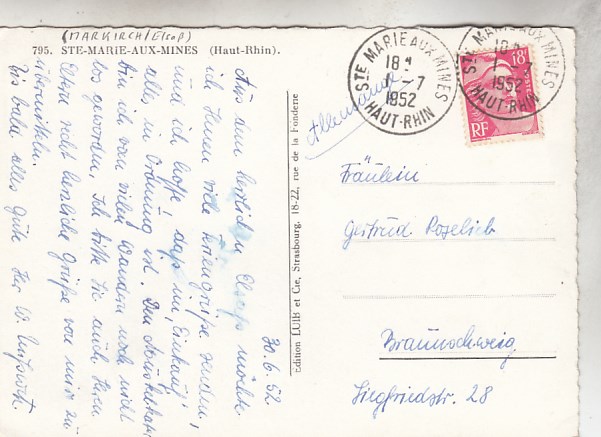 (MARKIRCH/Elsaß)
795. STE-MARIE-AUX-MINES (Haut-Rhin).
30.6.52
Aus dem herrlichen Elsaß möchte
ich Ihnen viele senden,
und ich hoffe, daß im „Einkauf"
alles in Ordnung ist. Den
bin ich vom vielen Wandern noch nicht
los geworden. Ich bitte Sie auch Ihren
Eltern recht herzliche Grüße von mir zu
übermitteln.
Bis dahin alles Gute Ihr W.
Edition LUIB et Cie, Strasbourg, 18-22, rue de la Fonderie
Allemagne
STE MARIE AUX MINES
18H
1-7
1952
HAUT-RHIN
STE MARIE AUX MINES
18H
1-7
1952
HAUT-RHIN
18F
RF
Fräulein
Gertrud Roselieb
Braunschweig
Siegfriedstr. 28